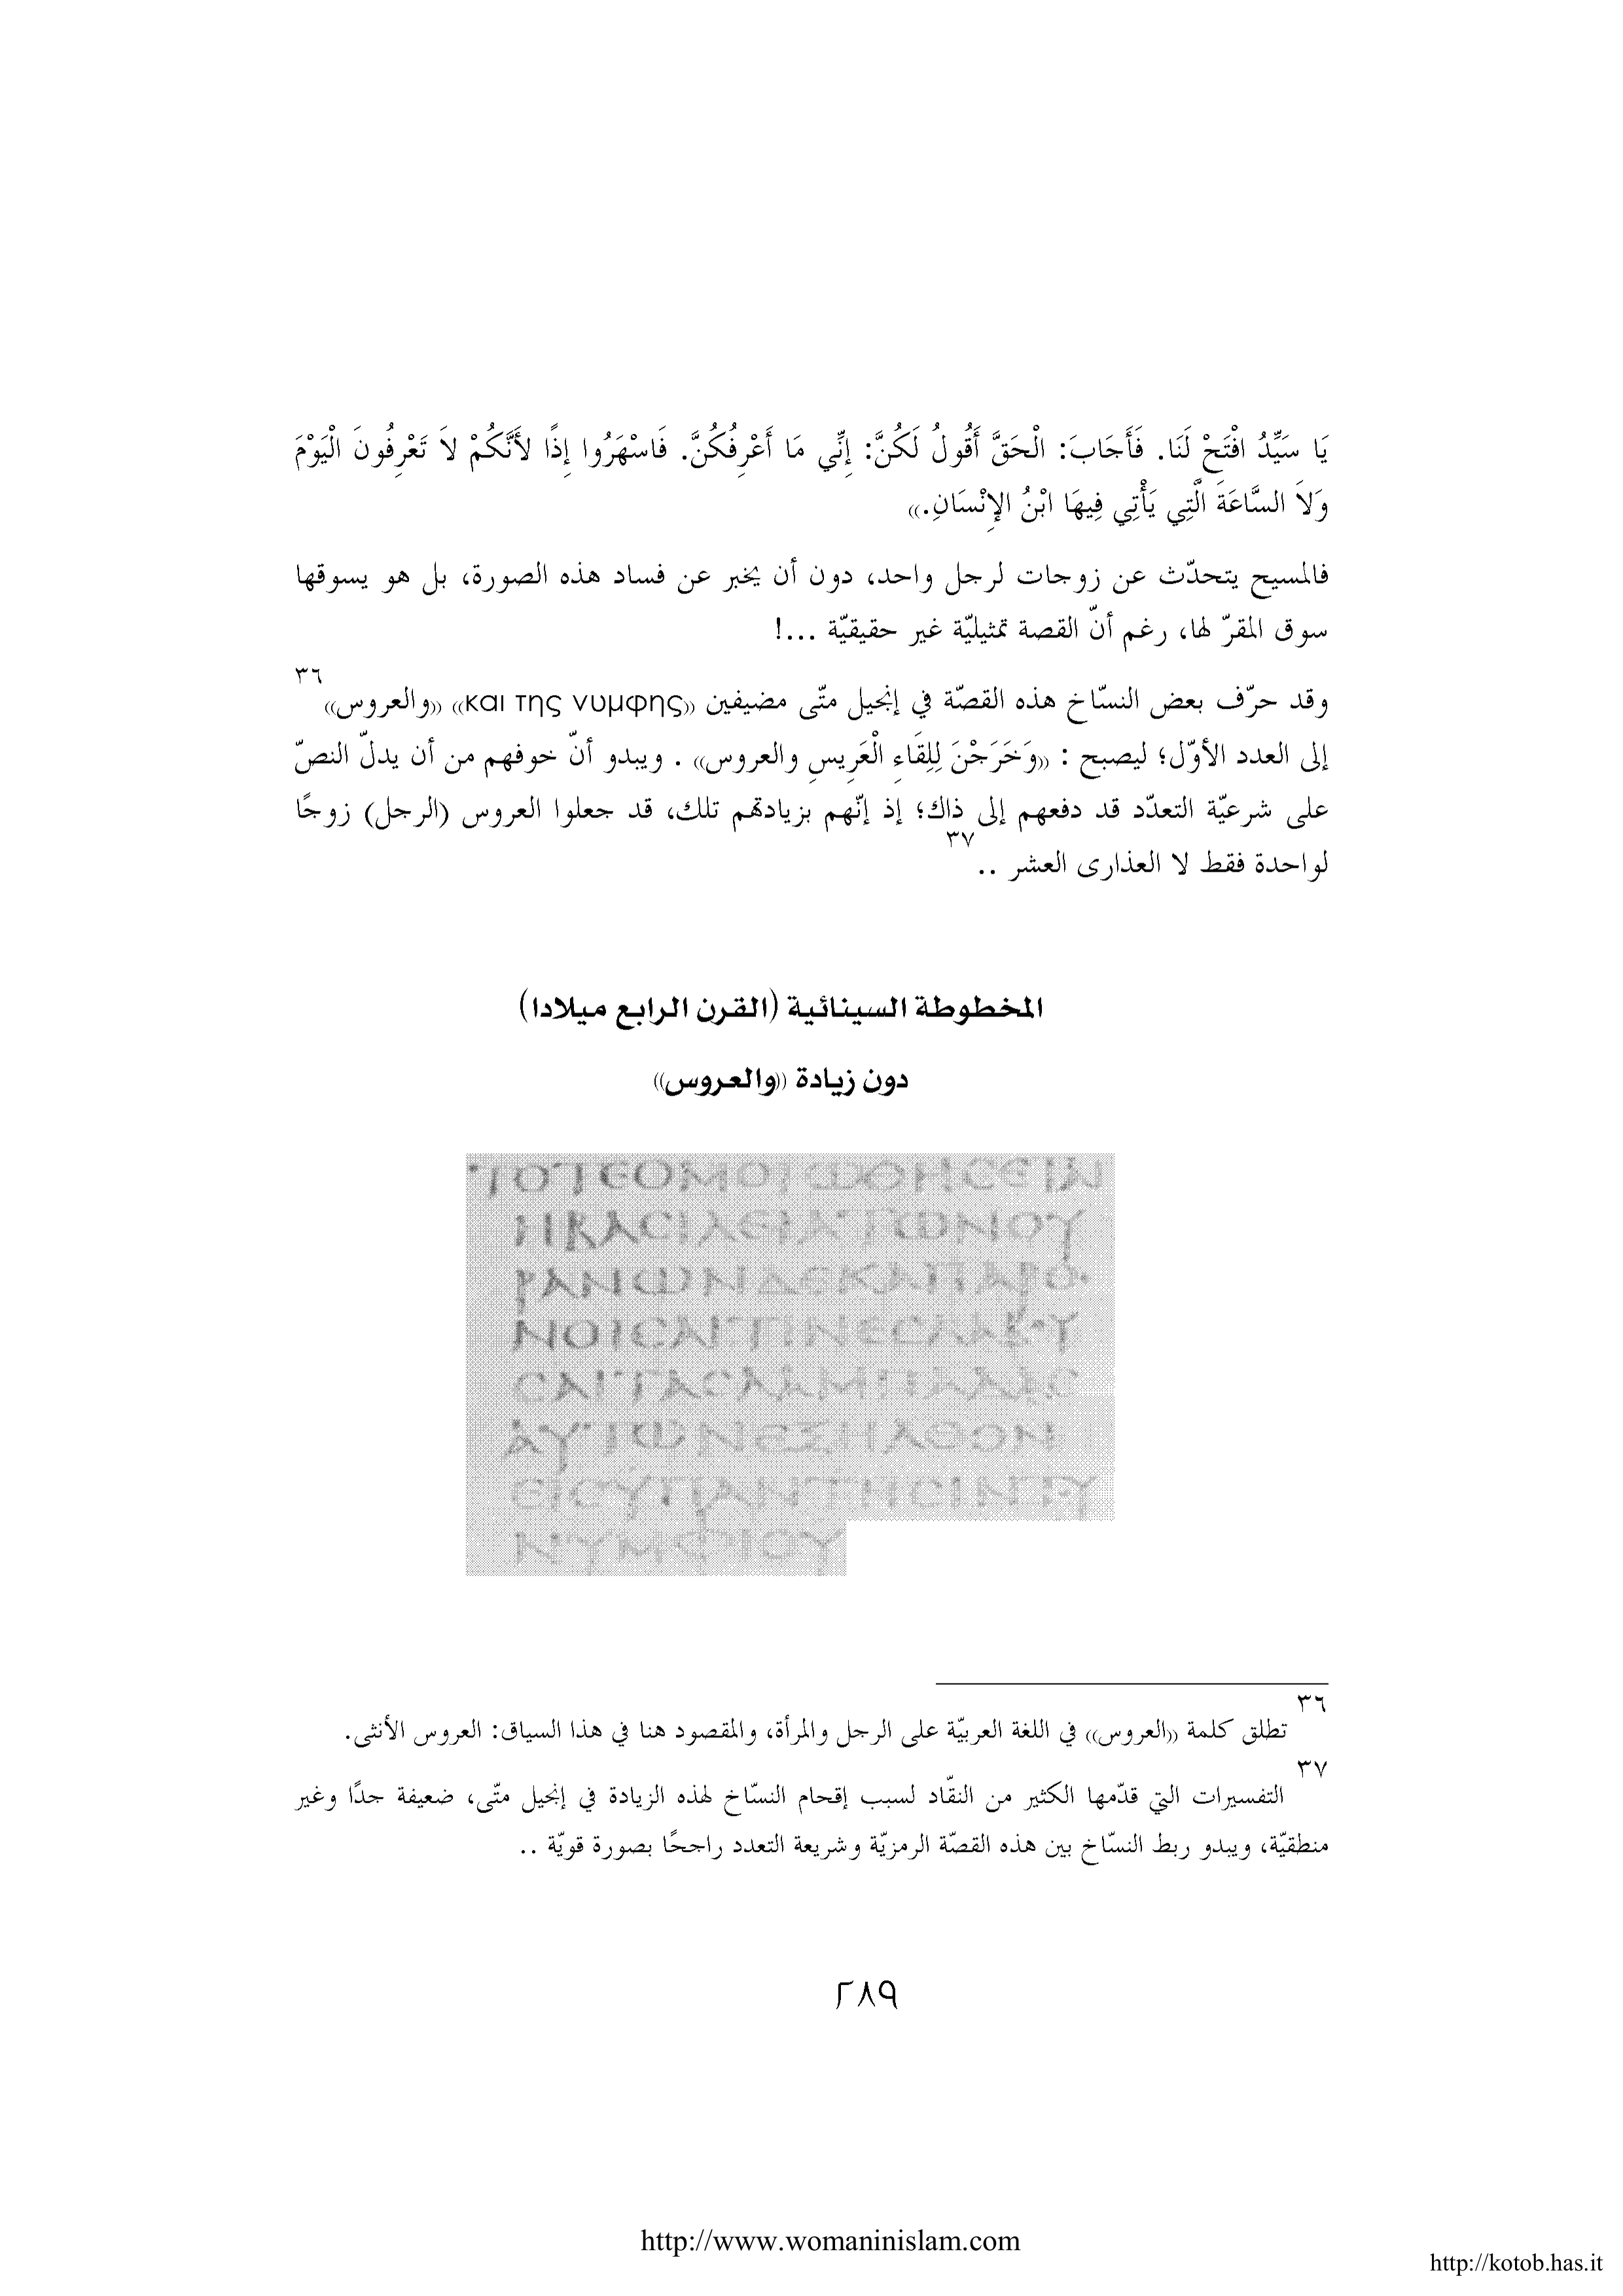 يَا سَيِّدُ افْتَحْ لَنَا. فَأَجَابَ: الْحَقَّ أَقُولُ لَكُنَّ: إِنِّي مَا أَعْرِفُكُنَّ. فَاسْهَرُوا إِذًا لأَنَّكُمْ لاَ تَعْرِفُونَ الْيَوْمَ
وَلاَ السَّاعَةَ الَّتِي يَأْتِي فِيهَا ابْنُ الإِنْسَانِ.»
فالمسيح يتحدّث عن زوجات لرجل واحد، دون أن يخبر عن فساد هذه الصورة، بل هو يسوقها
سوق المقرّ لها، رغم أنّ القصة تمثيليّة غير حقيقيّة ...!
وقد حرّف بعض النسّاخ هذه القصّة في إنجيل متّى مضيفين «και της νυμφης» «والعروس»٣٦
إلى العدد الأوّل؛ ليصبح : «وَخَرَجْنَ لِلِقَاءِ الْعَرِيسِ والعروس» . ويبدو أنّ خوفهم من أن يدلّ النصّ
على شرعيّة التعدّد قد دفعهم إلى ذاك؛ إذ إنّهم بزيادتهم تلك، قد جعلوا العروس (الرجل) زوجًا
لواحدة فقط لا العذارى العشر ..٣٧
المخطوطة السينائية (القرن الرابع ميلادا)
دون زيادة «والعروس»
ΤΟΤΕΟΜΟΙΩΘΗϹΕΙΝ
ΗΒΑϹΙΛΕΙΑΤΩΝΟΥ
ΡΑΝΩΝΔΕΚΑΠΑΡΘΕ
ΝΟΙϹΑΙΤΙΝΕϹΛΑΒΟΥ
ϹΑΙΤΑϹΛΑΜΠΑΔΑϹ
ΑΥΤΩΝΕΞΗΛΘΟΝ
ΕΙϹΥΠΑΝΤΗϹΙΝΤΟΥ
ΝΥΜΦΙΟΥ
٣٦ تطلق كلمة «العروس» في اللغة العربيّة على الرجل والمرأة، والمقصود هنا في هذا السياق: العروس الأنثى.
٣٧ التفسيرات التي قدّمها الكثير من النقّاد لسبب إقحام النسّاخ لهذه الزيادة في إنجيل متّى، ضعيفة جدًا وغير
منطقيّة، ويبدو ربط النسّاخ بين هذه القصّة الرمزيّة وشريعة التعدد راجحًا بصورة قويّة ..
٢٨٩
http://www.womaninislam.com
http://kotob.has.it